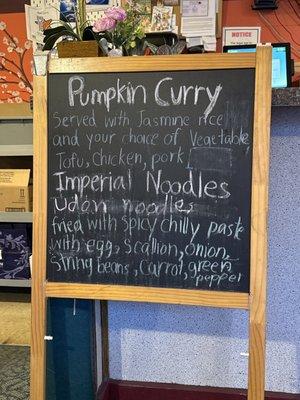 NOTICE
Pumpkin Curry
Served with Jasmine rice
and your choice of Vegetable,
Tofu, Chicken, pork,
Imperial Noodles
Udon noodles
fried with spicy chilly paste
with egg, scallion, onion,
string beans, carrot, green
pepper